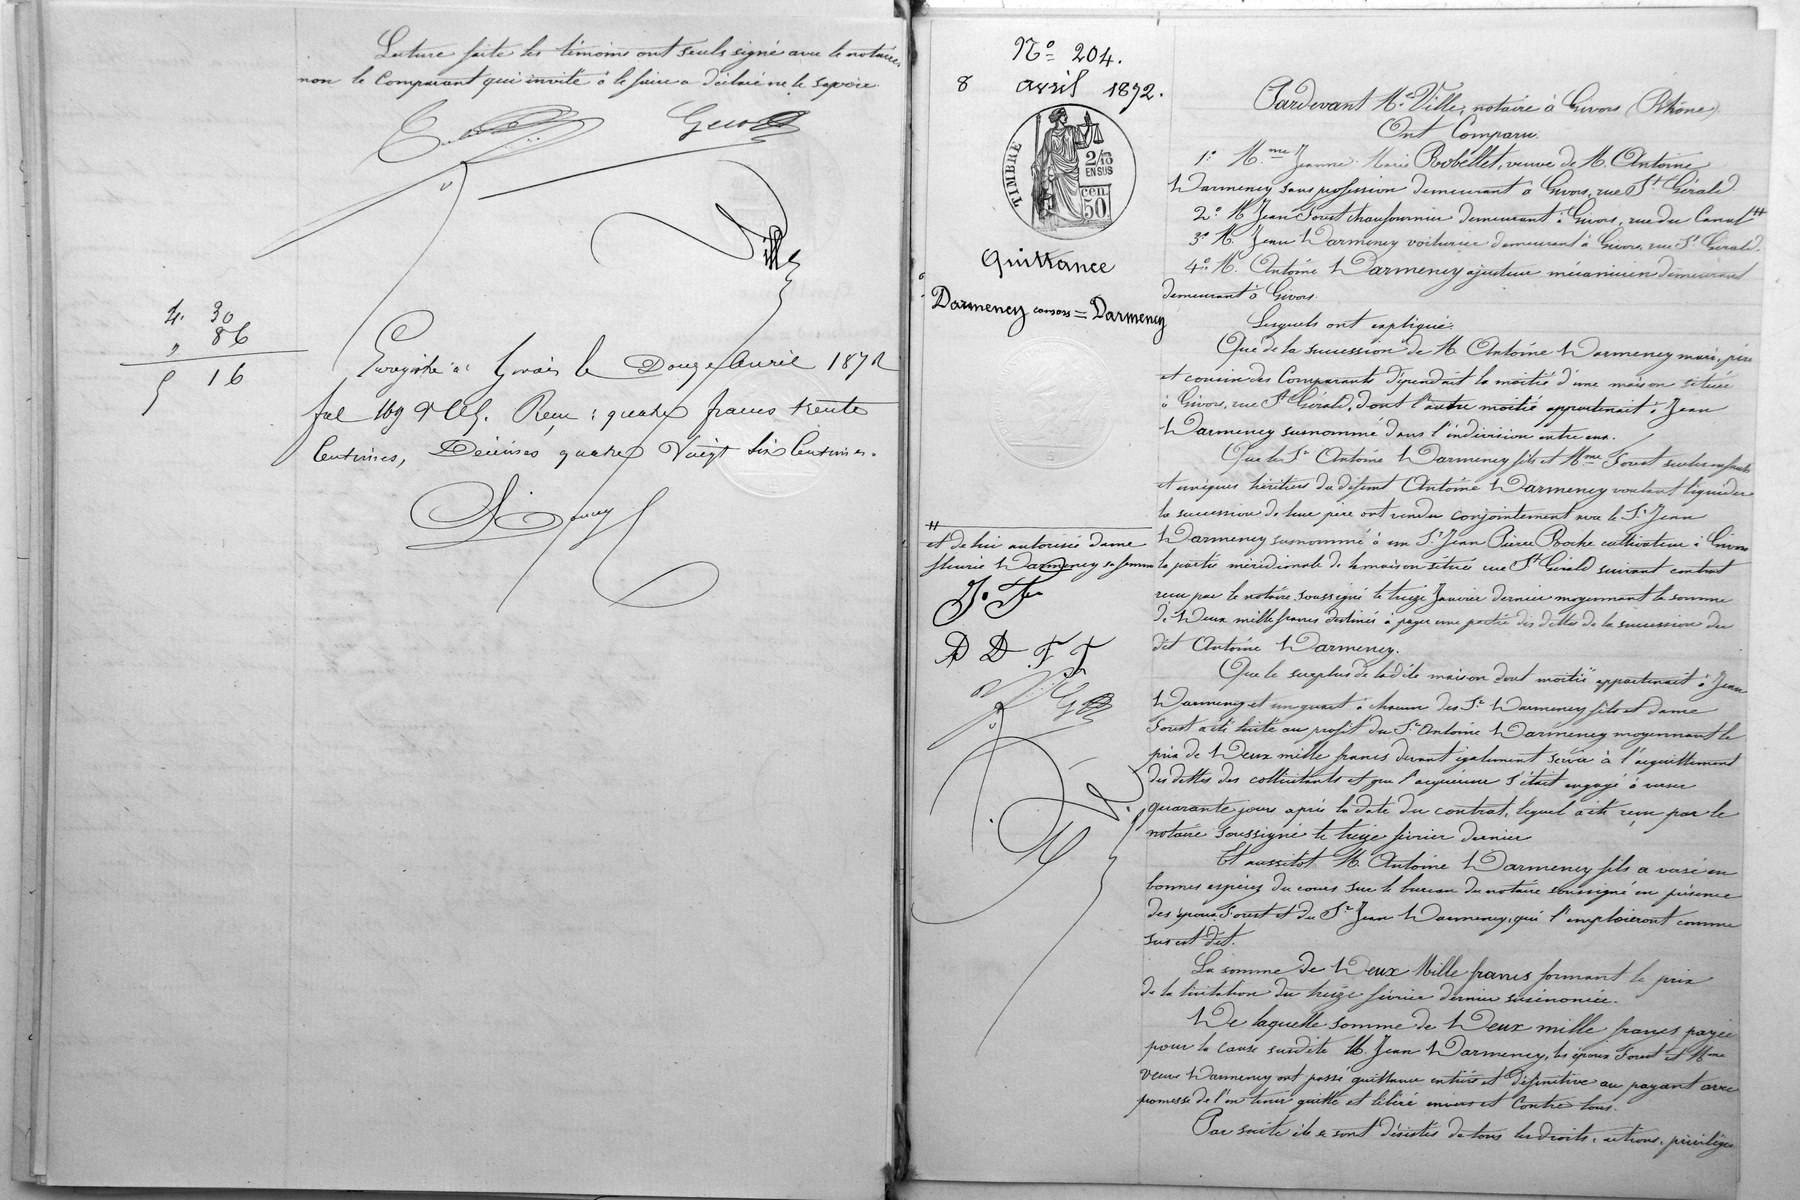 Lecture faite les témoins ont seuls signé avec le notaire
non le Comparant qui invité à le faire a déclaré ne le savoir.
Ville
4. 30
, 86
5 16
Enregistré à Givors le Douze Avril 1872
fol 169 Reçu : quatre francs trente
Centimes, Décimes quatre Vingt Six Centimes.
No 204.
8 avril 1872.
TIMBRE
2/10
EN SUS
50 cen
Quittance
Darmency consors = Darmency
Pardevant Me Ville, notaire à Givors (Rhône)
Ont Comparu.
1o Mme Jeanne Marie Robellet, veuve de M. Antoine
Darmency sans profession demeurant à Givors, rue St Gérald
2o M Jean Forest chaufournier demeurant à Givors, rue du Canal #
3o M. Jean Darmency voiturier demeurant à Givors, rue St Gérald.
4o M. Antoine Darmency ajusteur mécanicien demeurant
demeurant à Givors.
Lesquels ont expliqué.
Que de la succession de M Antoine Darmency mari, père
et cousin des Comparants dépendait la moitié d'une maison située
à Givors, rue St Gérald, dont l'autre moitié appartenait à Jean
Darmency susnommé dans l'indivision entre eux.
Que le Sr Antoine Darmency fils et Mme Forest seuls enfants
et uniques héritiers du défunt Antoine Darmency voulant liquider
la succession de leur père ont vendu conjointement avec le Sr Jean
Darmency susnommé à un Sr Jean Pierre Broche cultivateur à Givors
la partie méridionale de la maison située rue St Gérald suivant contrat
reçu par le notaire soussigné le treize Janvier dernier moyennant la somme
de Deux mille francs destinés à payer une partie des dettes de la succession du
dit Antoine Darmency.
Que le surplus de ladite maison dont moitié appartenait à Jean
Darmency et un quart à chacun des Sr Darmency fils et dame
Forest a été licité au profit du Sr Antoine Darmency moyennant le
prix de Deux mille francs devant également servir à l'acquittement
des dettes des colicitants et que l'acquéreur s'était engagé à verser
quarante jours après la date du contrat, lequel a été reçu par le
notaire soussigné le treize février dernier
Et aussitot M. Antoine Darmency fils a versé en
bonnes espèces du cours sur le bureau du notaire soussigné en présence
des époux Forest et du Sr Jean Darmency, qui l'emploieront comme
sus est dit.
La somme de Deux Mille francs formant le prix
de la licitation du treize février dernier susénoncée.
De laquelle somme de Deux mille francs payée
pour la cause susdite M. Jean Darmency, les époux Forest et Mme
veuve Darmency ont passé quittance entière et définitive au payant avec
promesse de l'en tenir quitte et libéré envers et contre tous.
Par suite ils se sont désistés de tous les droits, actions, privilèges
#
et de lui autorisée dame
fleurie Darmency sa femme
D D F J